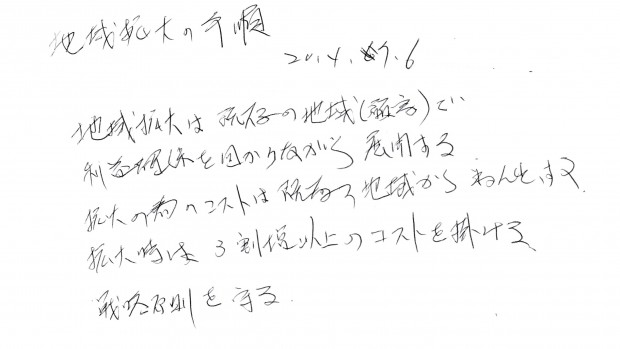 地域拡大の手順
20.4. 7.6
地域拡大は既存の地域(顧客)で
利益確保を図りながら 展開する
拡大の為のコストは既存の地域からねん出する
拡大時は 3割増以上のコストを掛ける
戦略原則を守る.